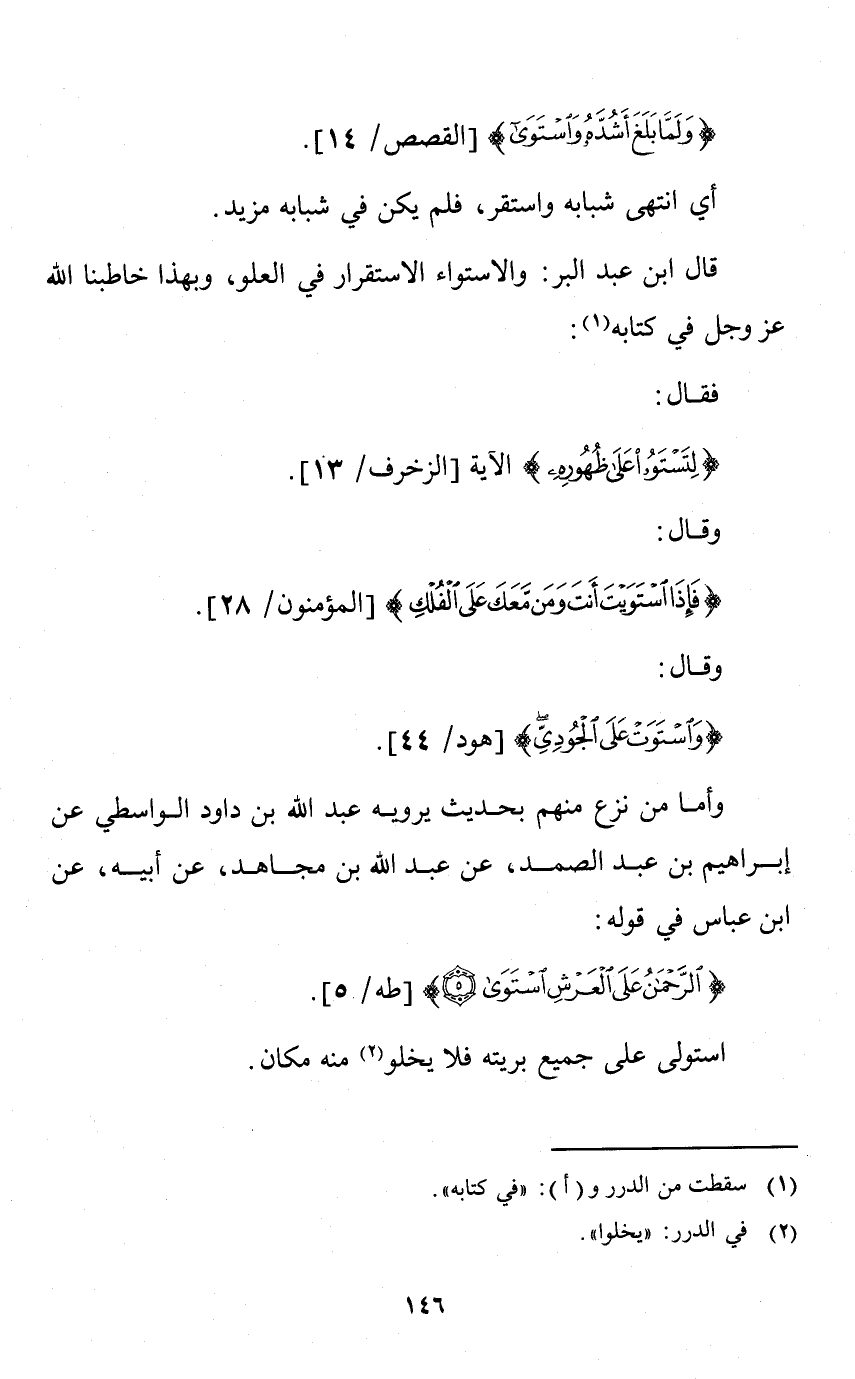 ﴿وَلَمَّا بَلَغَ أَشُدَّهُۥ وَٱسْتَوَىٰٓ﴾ [القصص/ ١٤].
أي انتهى شبابه واستقر، فلم يكن في شبابه مزيد.
قال ابن عبد البر: والاستواء الاستقرار في العلو، وبهذا خاطبنا الله
عز وجل في كتابه(١):
فقال:
﴿لِتَسْتَوُۥا۟ عَلَىٰ ظُهُورِهِۦ﴾ الآية [الزخرف/ ١٣].
وقال:
﴿فَإِذَا ٱسْتَوَيْتَ أَنتَ وَمَن مَّعَكَ عَلَى ٱلْفُلْكِ﴾ [المؤمنون/ ٢٨].
وقال:
﴿وَٱسْتَوَتْ عَلَى ٱلْجُودِىِّۖ﴾ [هود/ ٤٤].
وأما من نزع منهم بحديث يرويه عبد الله بن داود الواسطي عن
إبراهيم بن عبد الصمد، عن عبد الله بن مجاهد، عن أبيه، عن
ابن عباس في قوله:
﴿ٱلرَّحْمَٰنُ عَلَى ٱلْعَرْشِ ٱسْتَوَىٰ ٥﴾ [طه/ ٥].
استولى على جميع بريته فلا يخلو(٢) منه مكان.
(١) سقطت من الدرر و(أ): «في كتابه».
(٢) في الدرر: «يخلوا».
١٤٦